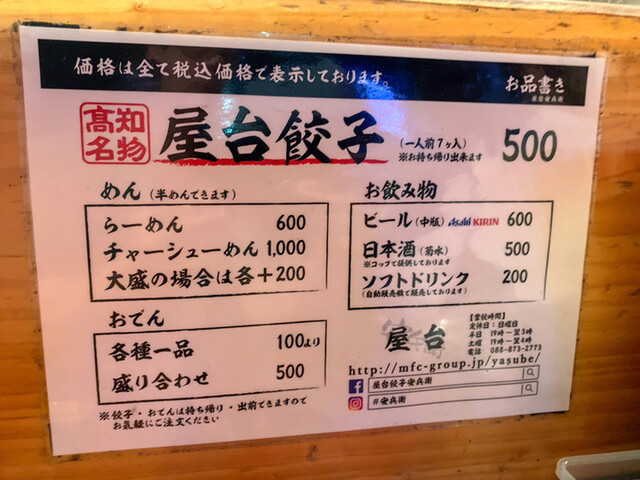 価格は全て税込価格で表示しております。
お品書き
屋台安兵衛
高知名物
屋台餃子
(一人前7ヶ入)
※お持ち帰り出来ます
500
めん (半めんできます)
らーめん 600
チャーシューめん 1,000
大盛の場合は各+200
おでん
各種一品 100より
盛り合わせ 500
※餃子・おでんは持ち帰り・出前できますので
お気軽にご注文ください
お飲み物
ビール (中瓶) Asahi KIRIN 600
日本酒 (菊水) 500
※コップで提供しております
ソフトドリンク 200
(自動販売機で販売しております)
屋台
【営業時間】
定休日:日曜日
平日 19時〜翌3時
土曜 19時〜翌4時
電話 088-873-2773
http://mfc-group.jp/yasube/
屋台餃子安兵衛
#安兵衛